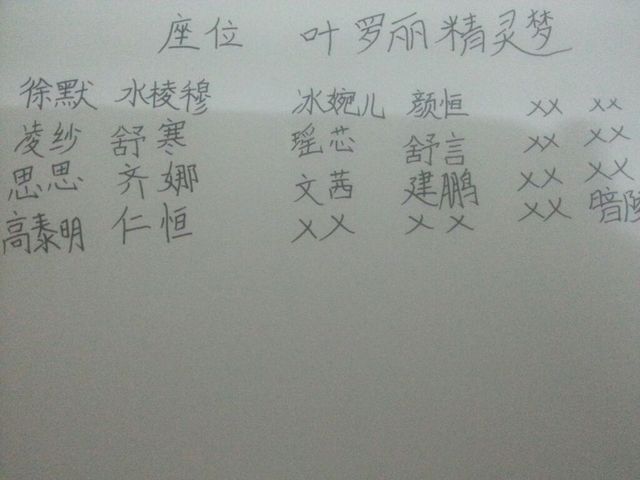 座位 叶罗丽精灵梦
徐默 水棱穆 冰婉儿 颜恒 ×× ××
凌纱 舒寒 瑶芯 舒言 ×× ××
思思 齐娜 文茜 建鹏 ×× ××
高泰明 仁恒 ×× ×× ×× 暗